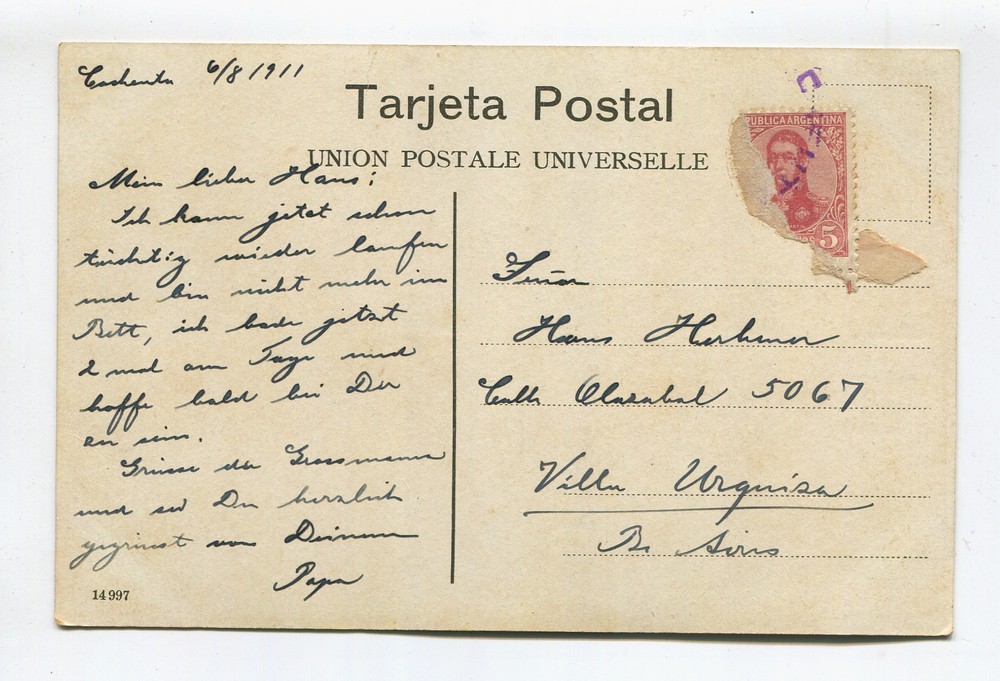 Cacheuta 6/8 1911
Tarjeta Postal
UNION POSTALE UNIVERSELLE
PUBLICA ARGENTINA
5
Mein lieber Hans!
Ich kann jetzt schon
tüchtig wieder laufen
und bin nicht mehr im
Bett, ich bade jetzt
2 mal am Tage und
hoffe bald bei Dir
zu sein.
Grüsse die Grossmama
und sei Du herzlich
gegrüsst von Deinem
Papa
Señor
Hans
Calle Olazabal 5067
Villa Urquiza
Bs Aires
14997